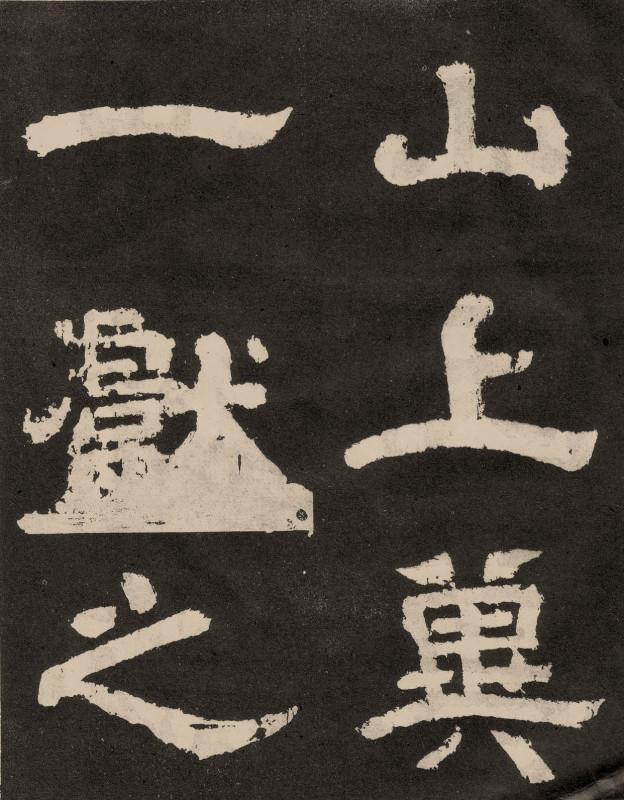 山上兾
一獻之